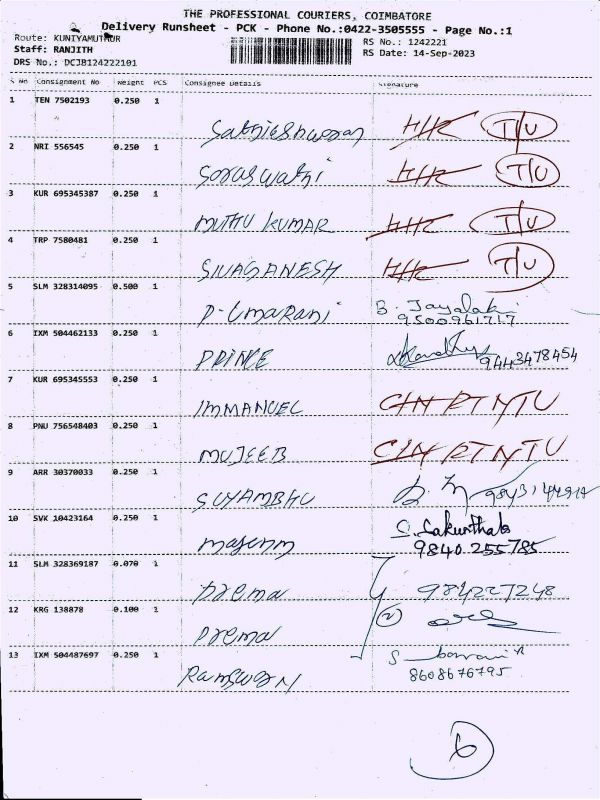 THE PROFESSIONAL COURIERS, COIMBATORE
Delivery Runsheet - PCK - Phone No.:0422-3505555 - Page No.:1
Route: KUNIYAMUTHUR
Staff: RANJITH
DRS No.: DCJB124222101
RS No.: 1242221
RS Date: 14-Sep-2023
S No Consignment No Weight PCS Consignee Details Signature
1 TEN 7502193 0.250 1
T/U
2 NRI 556545 0.250 1
T/U
3 KUR 695345387 0.250 1
MUTHU KUMAR T/U
4 TRP 7580481 0.250 1
SIVAGANESH T/U
5 SLM 328314095 0.500 1
P-UmaRani B. Jayalaksmi
9500961717
6 IXM 504462133 0.250 1
PRINCE 9443478454
7 KUR 695345553 0.250 1
IMMANUEL
8 PNU 756548403 0.250 1
MUJEEB
9 ARR 30370033 0.250 1
SUYAMBHU
10 SVK 10423164 0.250 1
S. Sakunthala
9840 255785
11 SLM 328369187 0.070 1
Prema 984227248
12 KRG 138878 0.100 1
Prema 2
13 IXM 504487697 0.250 1
8608676795
6